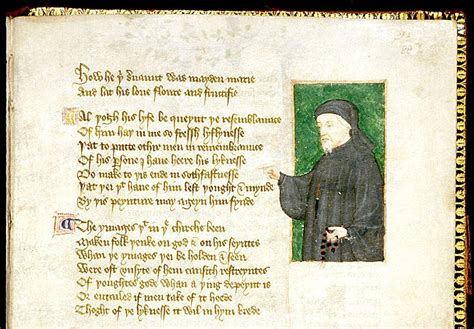 How he þⁱ seruaunt was mayden marie
And lat his loue floure and fructifie
Al þogh his lyfe be queynt þe resemblaunce
Of him haþ in me so fressh lyflynesse
Þat to putte othir men in remembraunce
Of his ꝑsone I haue heere his lyknesse
Do make to þis ende in sothfastnesse
Þat þei þᵗ haue of him lest þought & mynde
By þis peynture may ageyn him fynde
The ymages þᵗ in þᵉ chirche been
Maken folk þenke on god & on his seyntes
Whan þᵉ ymages þei be holden & seen
Were oft vnsyte of hem causith restreyntes
Of þoughtes gode whan a þing depeynt is
Or entailed if men take of it heede
Thoght of þe lyknesse it wil in hym brede